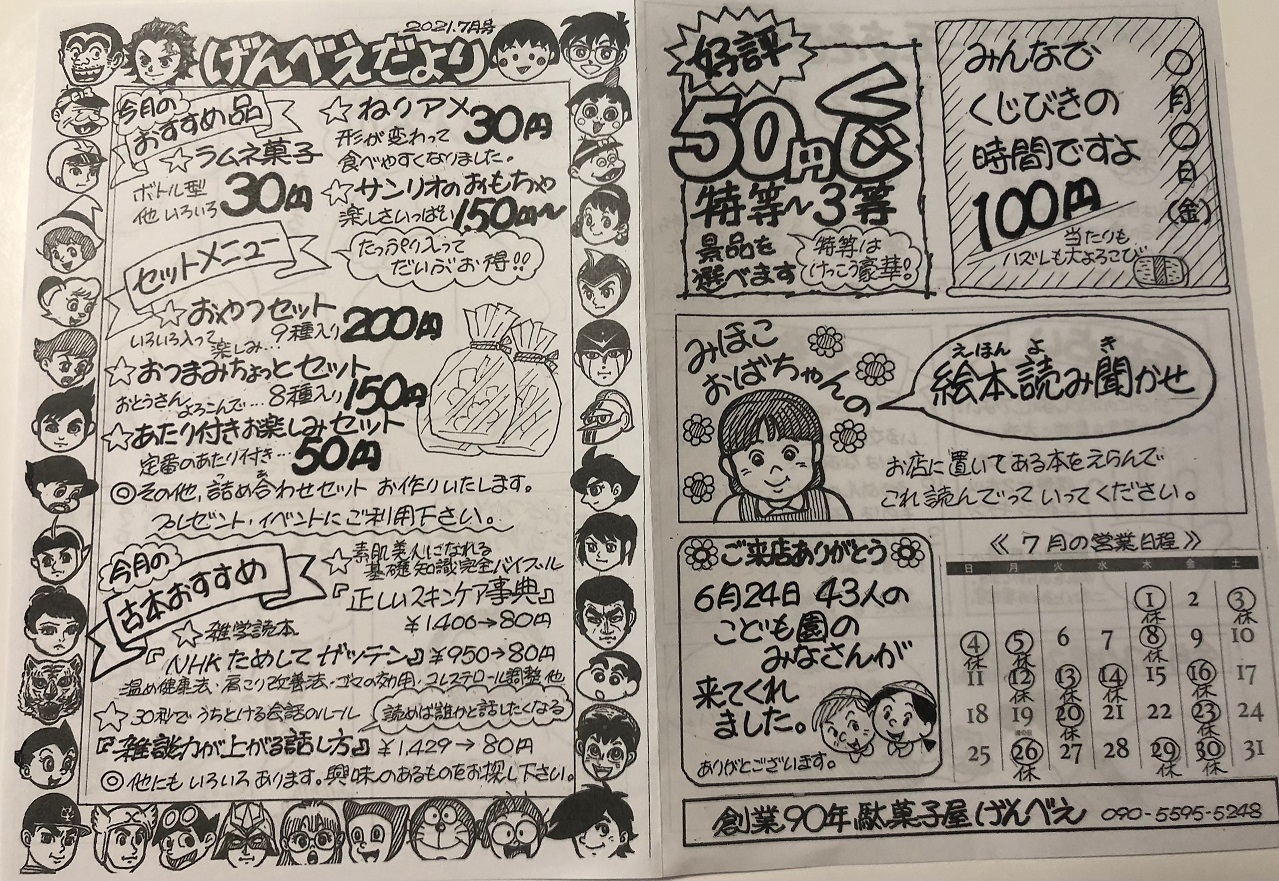 2021.7月号
げんべえだより
今月の
おすすめ品
☆ラムネ菓子
ボトル型
他いろいろ 30円
☆ねりアメ 30円
形が変わって
食べやすくなりました。
☆サンリオのおもちゃ
楽しさいっぱい 150円〜
セットメニュー
たっぷり入って
だいぶお得!!
☆おやつセット
いろいろ入って
楽しみ…9種入り 200円
☆おつまみちょっとセット
おとうさん
よろこんで…8種入り 150円
☆あたり付きお楽しみセット
定番のあたり付き… 50円
◎その他、詰め合わせセット お作りいたします。
あ
プレゼント・イベントにご利用下さい。
今月の
古本おすすめ
☆素肌美人になれる
基礎知識完全バイブル
『正しいスキンケア事典』
¥1400→80円
☆雑学読本
『NHKためしてガッテン』¥950→80円
温め健康法・肩こり改善法・ゴマの効用・コレステロール調整他
☆30秒でうちとける会話のルール
読めば誰かと話したくなる
『雑談力が上がる話し方』¥1,429→80円
◎他にもいろいろあります。興味のあるものをお探し下さい。
好評
50円くじ
特等〜3等
景品を
選べます
特等は
けっこう豪華!
みんなで
くじびきの
時間ですよ
100円
当たりも
ハズレも大よろこび
〇月〇日(金)
みほこ
おばちゃんの
えほん よ き
絵本読み聞かせ
お店に置いてある本をえらんで
これ読んでって いってください。
ご来店ありがとう
6月24日 43人の
こども園の
みなさんが
来てくれ
ました。
ありがとございます。
≪7月の営業日程≫
日 月 火 水 木 金 土
1 2 3
休 休
4 5 6 7 8 9 10
休 休 休
11 12 13 14 15 16 17
休 休 休 休
18 19 20 21 22 23 24
休 休
25 26 27 28 29 30 31
休 休 休
創業90年 駄菓子屋 げんべえ 090-5595-5248